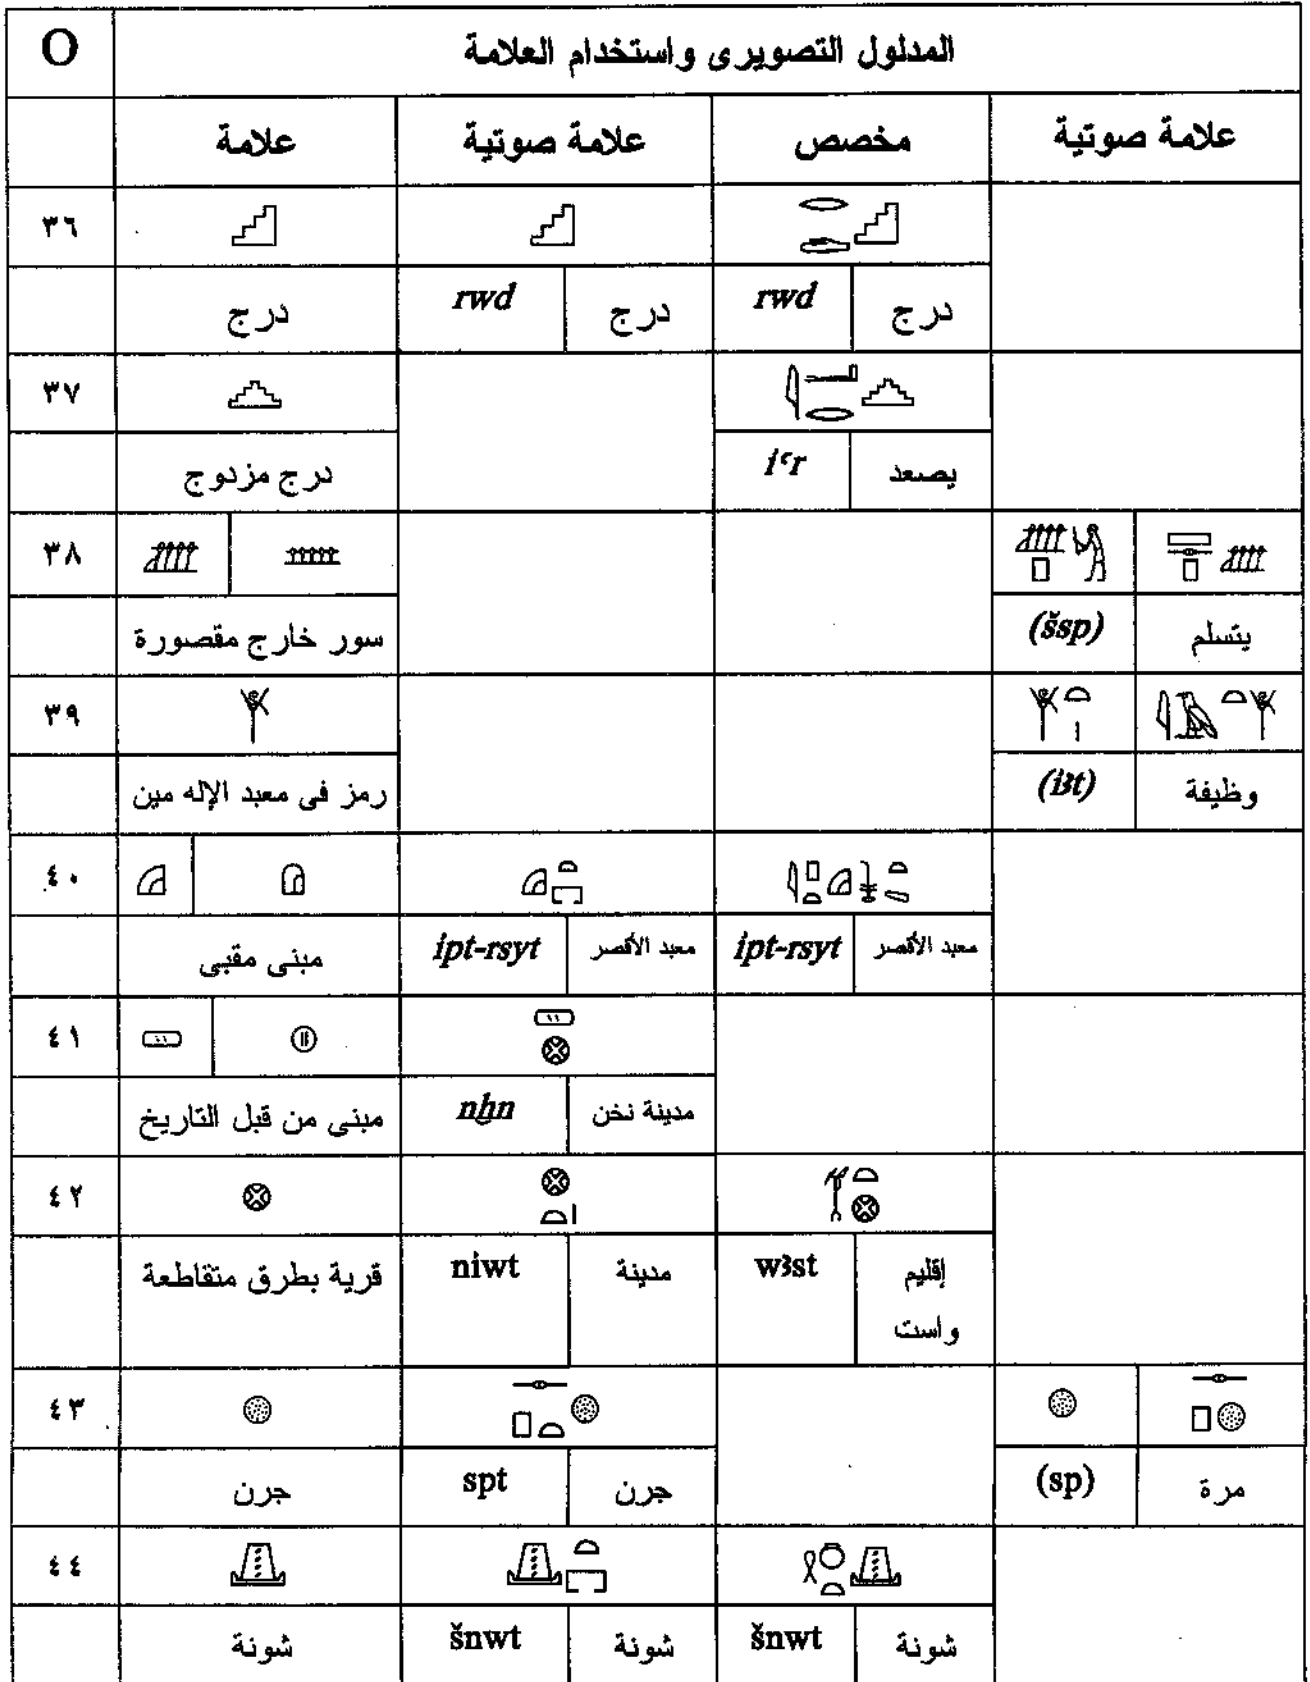 O المدلول التصويرى واستخدام العلامة
علامة علامة صوتية مخصص علامة صوتية
٣٦
درج rwd درج rwd درج
٣٧
درج مزدوج iꜥr يصعد
٣٨
سور خارج مقصورة (šsp) يتسلم
٣٩
رمز فى معبد الإله مين (iꜣt) وظيفة
٤٠
مبنى مقبى ipt-rsyt معبد الأقصر ipt-rsyt معبد الأقصر
٤١
مبنى من قبل التاريخ nḫn مدينة نخن
٤٢
قرية بطرق متقاطعة niwt مدينة wꜣst إقليم
واست
٤٣
جرن spt جرن (sp) مرة
٤٤
شونة šnwt شونة šnwt شونة